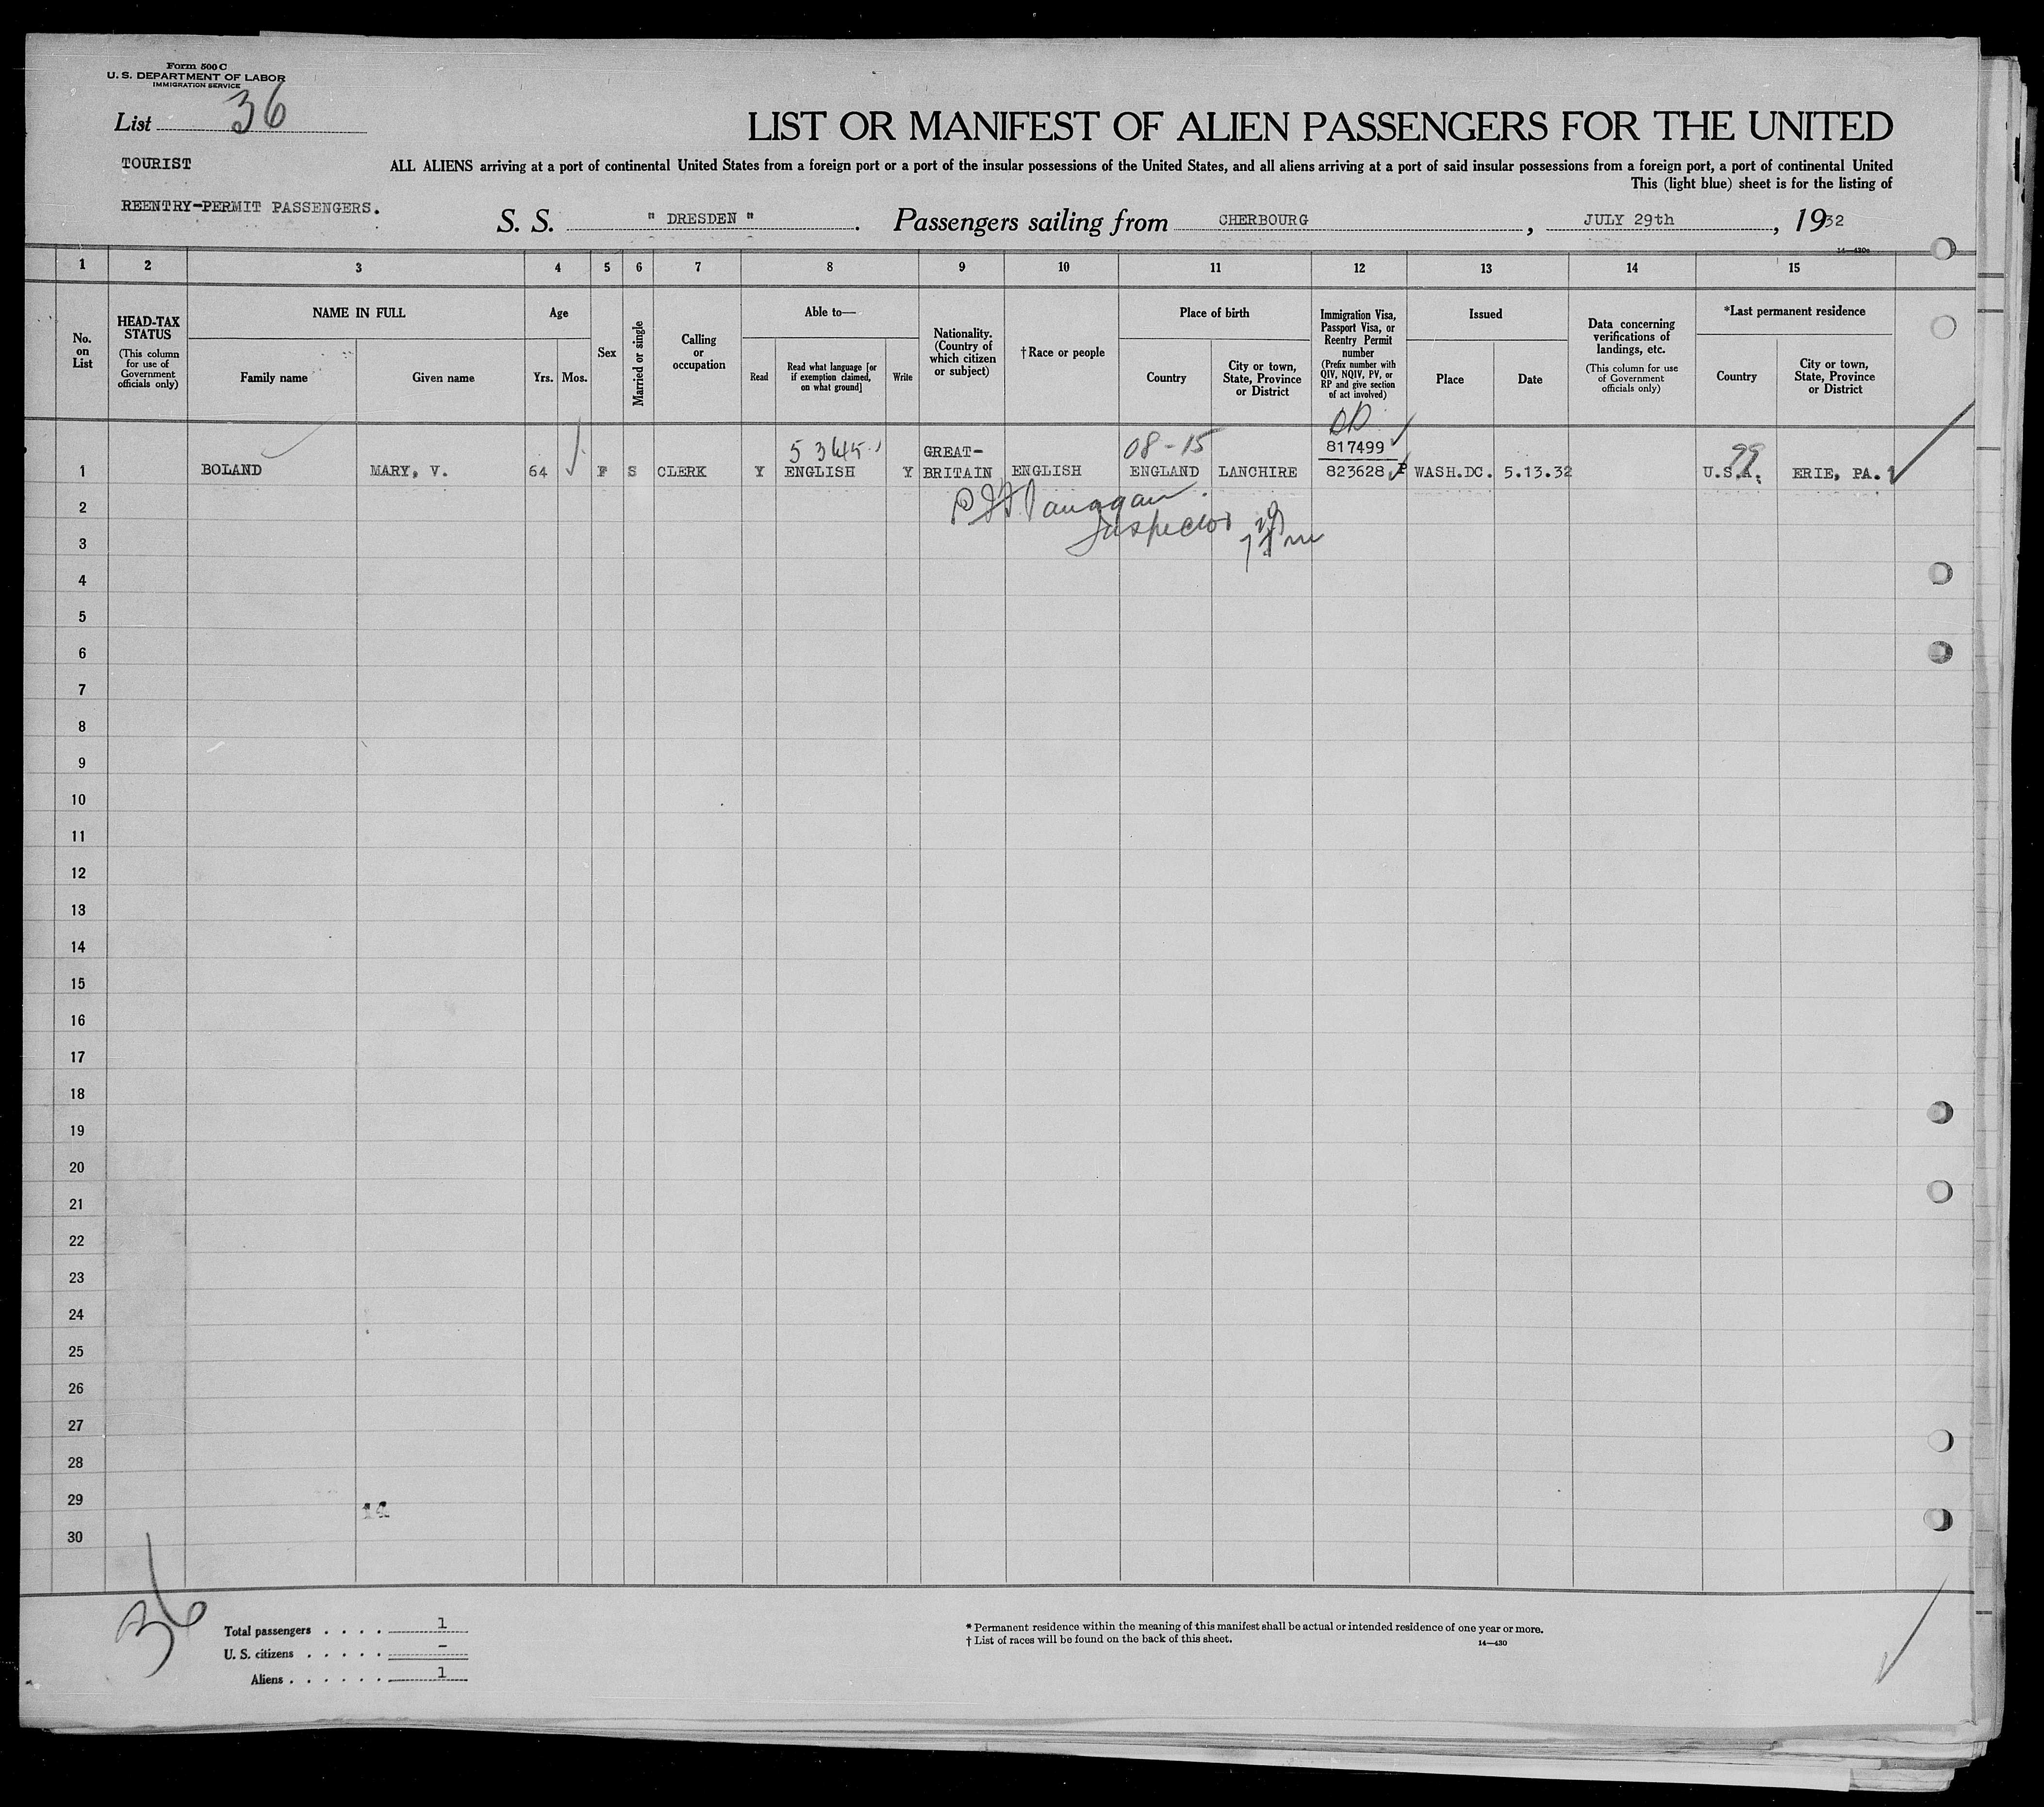 Form 500 C
U. S. DEPARTMENT OF LABOR
IMMIGRATION SERVICE
List 36
LIST OR MANIFEST OF ALIEN PASSENGERS FOR THE UNITED
TOURIST
ALL ALIENS arriving at a port of continental United States from a foreign port or a port of the insular possessions of the United States, and all aliens arriving at a port of said insular possessions from a foreign port, a port of continental United
This (light blue) sheet is for the listing of
REENTRY-PERMIT PASSENGERS.
S. S. " DRESDEN ". Passengers sailing from CHERBOURG, JULY 29th, 1932
14—430c
1 2 3 4 5 6 7 8 9 10 11 12 13 14 15
No. on List
HEAD-TAX STATUS
(This column for use of Government officials only)
NAME IN FULL
Family name
Given name
Age
Yrs. Mos.
Sex
Married or single
Calling or occupation
Able to—
Read
Read what language [or if exemption claimed, on what ground]
Write
Nationality. (Country of which citizen or subject)
† Race or people
Place of birth
Country
City or town, State, Province or District
Immigration Visa, Passport Visa, or Reentry Permit number
(Prefix number with QIV, NQIV, PV, or RP and give section of act involved)
Issued
Place
Date
Data concerning verifications of landings, etc.
(This column for use of Government officials only)
*Last permanent residence
Country
City or town, State, Province or District
5 3645 GREAT- 08-15 817499 99
1 BOLAND MARY, V. 64 F S CLERK Y ENGLISH Y BRITAIN ENGLISH ENGLAND LANCHIRE 823628 P WASH.DC. 5.13.32 U.S.A. ERIE, PA. 1
2
Inspector
3
4
5
6
7
8
9
10
11
12
13
14
15
16
17
18
19
20
21
22
23
24
25
26
27
28
29
14
30
36
Total passengers . . . . 1
U. S. citizens . . . . . –
Aliens . . . . . . 1
* Permanent residence within the meaning of this manifest shall be actual or intended residence of one year or more.
† List of races will be found on the back of this sheet.
14—430